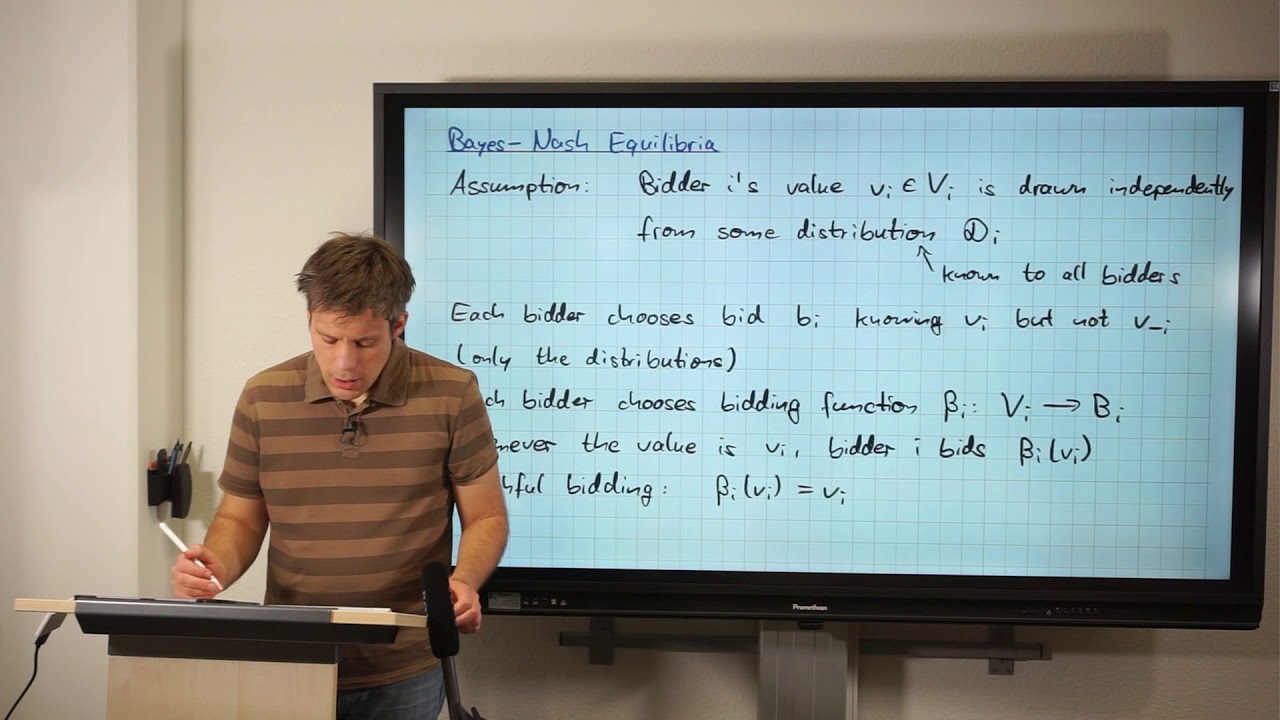 Bayes-Nash Equilibria
Assumption: Bidder i's value vᵢ ∈ Vᵢ is drawn independently
from some distribution 𝒟ᵢ
known to all bidders
Each bidder chooses bid bᵢ knowing vᵢ but not v₋ᵢ
(only the distributions)
ch bidder chooses bidding function βᵢ: Vᵢ → Bᵢ
never the value is vᵢ, bidder i bids βᵢ(vᵢ)
hful bidding: βᵢ(vᵢ) = vᵢ
Promethean